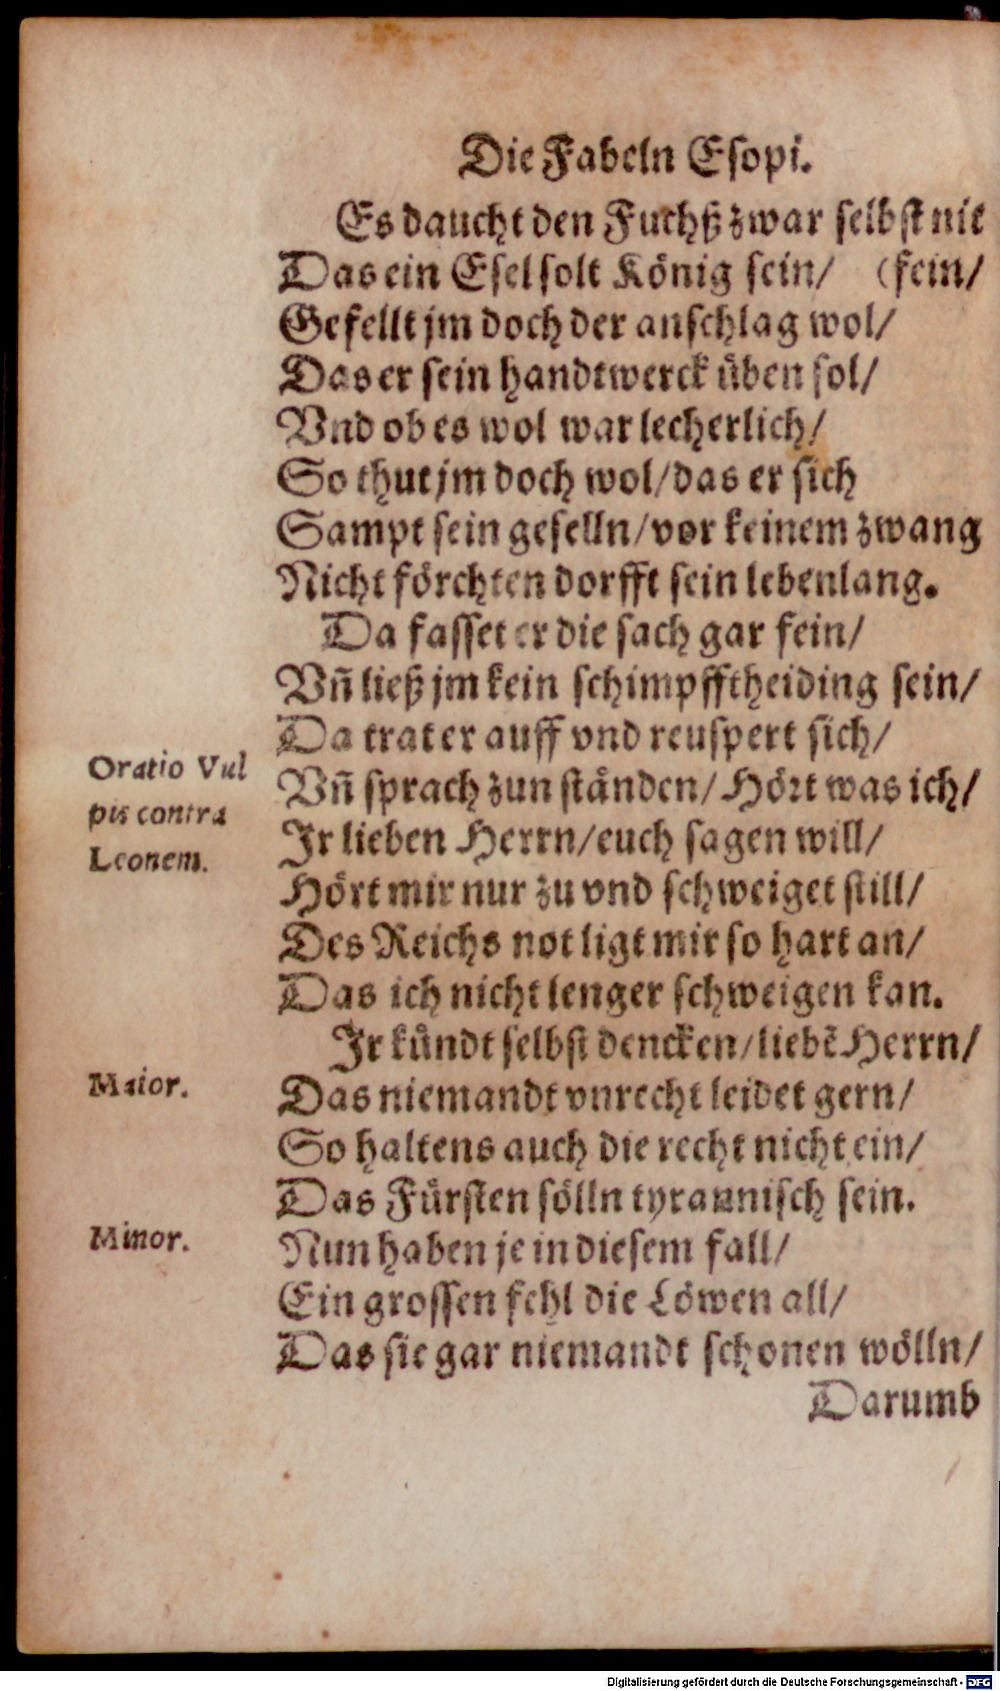 Die Fabeln Esopi.
Es daucht den Fuchß zwar selbst nit
Das ein Esel solt König sein/ (fein/
Gefellt jm doch der anschlag wol/
Das er sein handtwerck üben sol/
Vnd ob es wol war lecherlich/
So thut jm doch wol/das er sich
Sampt sein geselln/vor keinem zwang
Nicht förchten dorfft sein lebenlang.
Da fasset er die sach gar fein/
Vñ ließ jm kein schimpfftheiding sein/
Da trat er auff vnd reuspert sich/
Oratio Vul
pis contra
Leonem.
Vñ sprach zun ständen/Hört was ich/
Ir lieben Herrn/euch sagen will/
Hört mir nur zu vnd schweiget still/
Des Reichs not ligt mir so hart an/
Das ich nicht lenger schweigen kan.
Ir kündt selbst dencken/liebẽ Herrn/
Maior.
Das niemandt vnrecht leidet gern/
So haltens auch die recht nicht ein/
Das Fürsten sölln tyrannisch sein.
Minor.
Nun haben je in diesem fall/
Ein grossen fehl die Löwen all/
Das sie gar niemandt schonen wölln/
Darumb
Digitalisierung gefördert durch die Deutsche Forschungsgemeinschaft - DFG